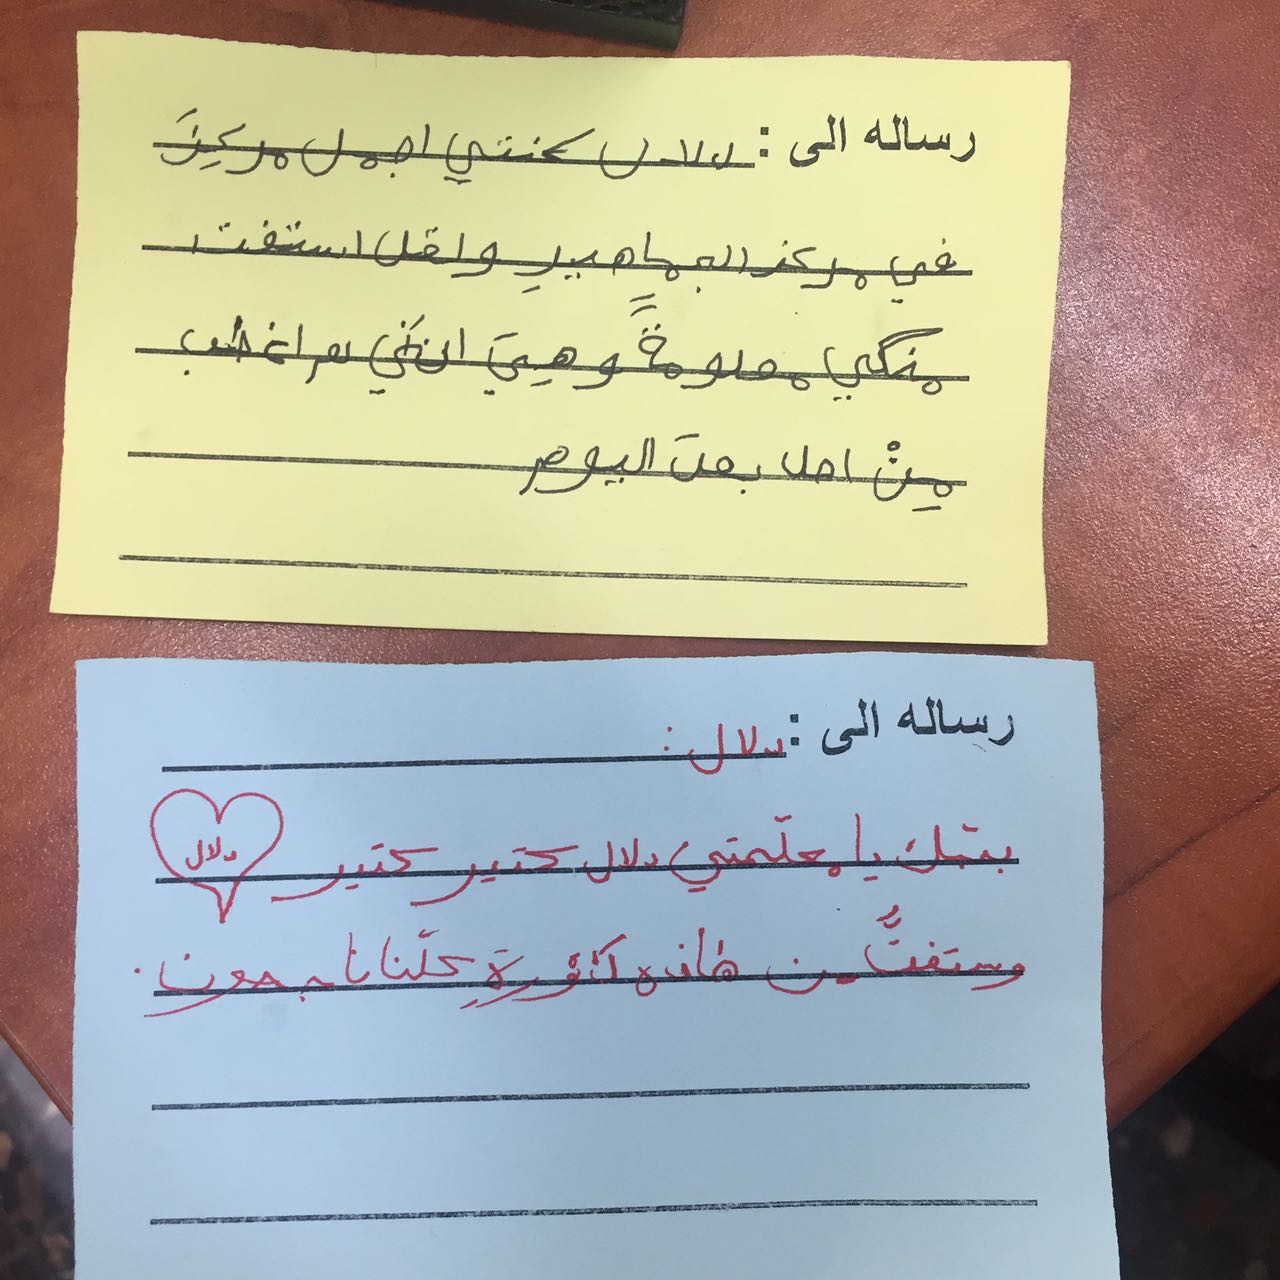 رساله الى : دلال كنتي اجمل مركزَ
في مركز الجماهيرِ ولقد استفت
منكي معلومةً وهِيَ انني لم اغضب
مِنْ احد بعدَ اليوم
رساله الى : دلال :
بحبّك يا معلّمتي دلال كتير كتير دلال
وستفتُّ من هاذه دَّوْرِةَ كلّنا ناجحون.